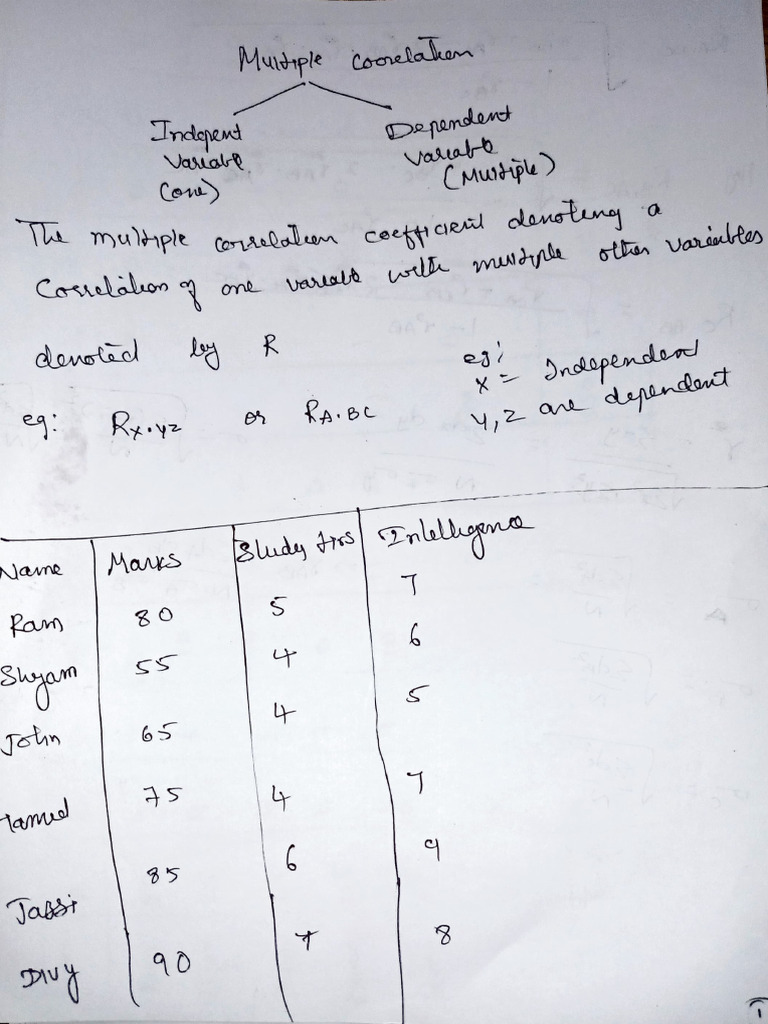 Multiple coorelation
Indepent Dependent
Variable Variable
(one) (Multiple)
The multiple correlation coefficient denoting a
Correlation of one variable with multiple other variables
denoted by R
eg: X = Independend
eg: Rx.yz or RA.BC Y, Z are dependent
Name Marks Study Hrs Intelligence
Ram 80 5 7
Shyam 55 4 6
John 65 4 5
Hamed 75 4 7
Jassi 85 6 9
Divy 90 7 8
1